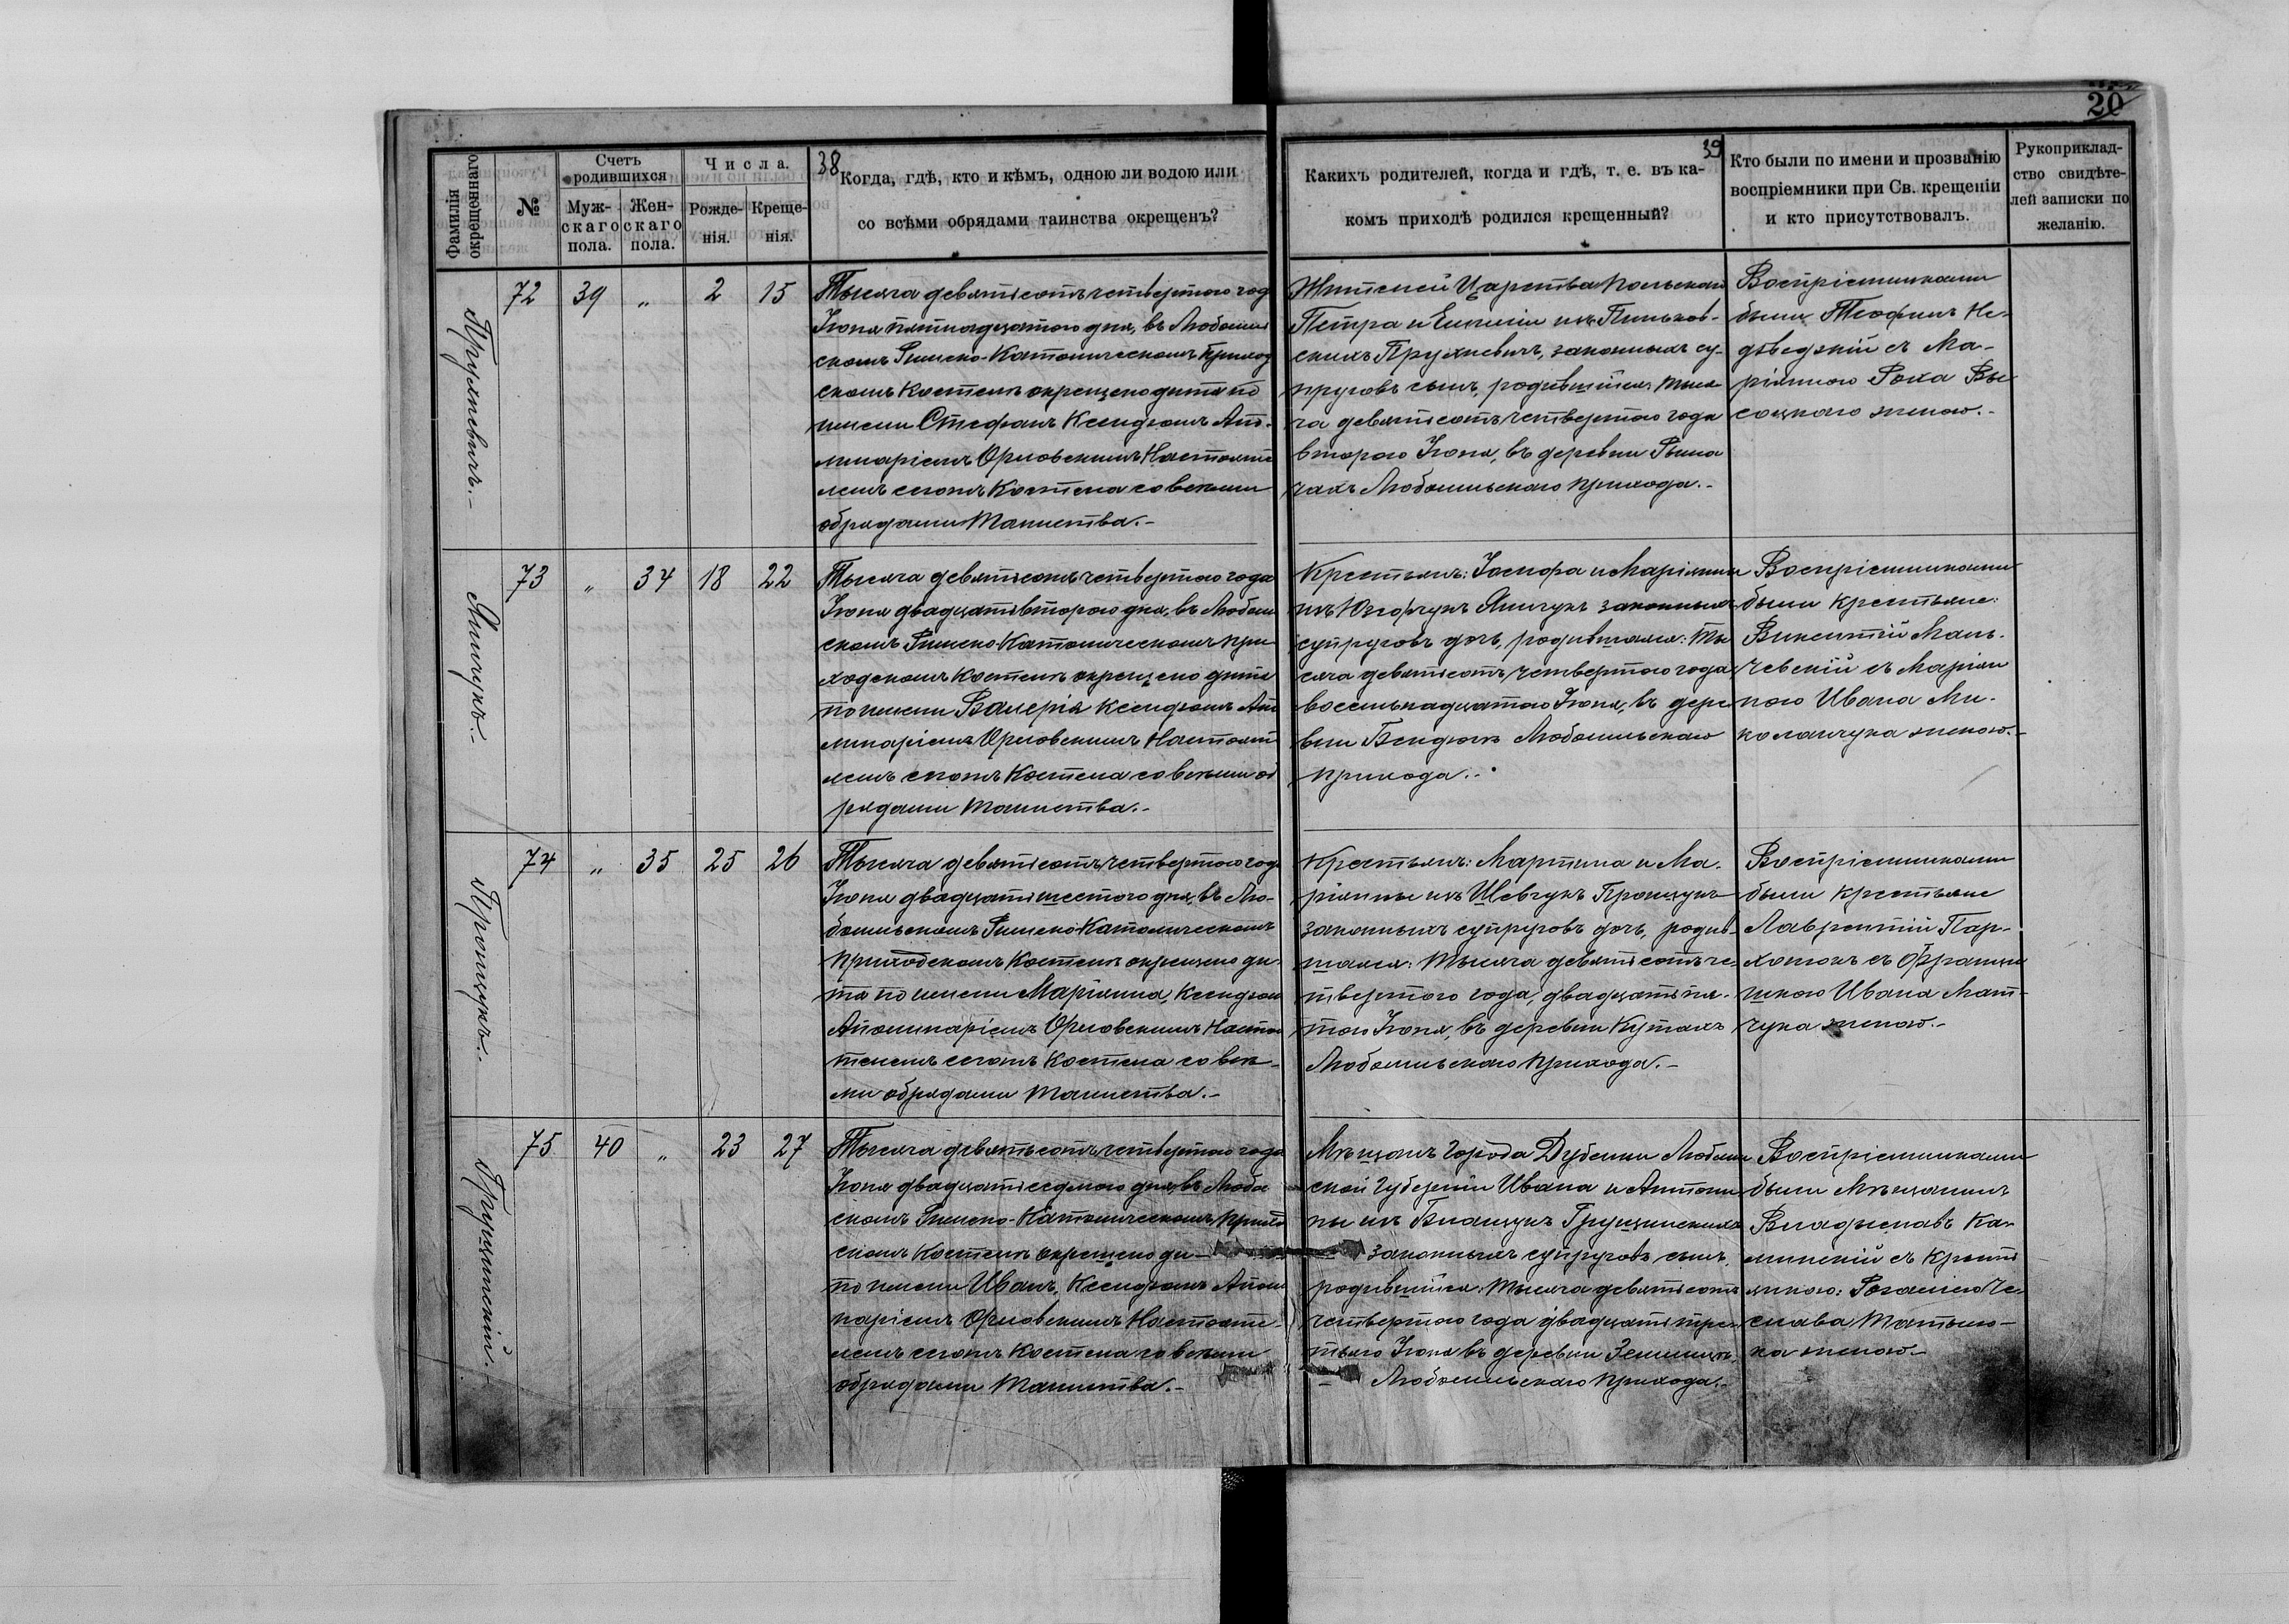 20
Фамилія окрещеннаго
№
Счетъ родившихся
Муж-скаго пола.
Жен-скаго пола.
Числа.
Рожде-нія.
Креще-нія.
38
Когда, гдѣ, кто и кѣмъ, одною ли водою или
со всѣми обрядами таинства окрещенъ?
39
Какихъ родителей, когда и гдѣ, т. е. въ ка-
комъ приходѣ родился крещенный?
Кто были по имени и прозванію
воспріемники при Св. крещеніи
и кто присутствовалъ.
Рукоприклад-
ство свидѣте-
лей записки по
желанію.
Прухневичъ.-
72 39 „ 2 15
Тысяча девятьсотъ четвертого год
Іюня пятнадцатого дня, въ Любомль
скомъ Римско-Католическомъ Приход
скомъ Костелѣ окрещено дитя по
имени Стефанъ Ксендзомъ Апо-
линаріемъ Орловскимъ Настояте
лемъ сегожъ Костела со всѣми
обрядами Таинства.-
Жителей Царства Польскаго
Петра и Емиліи изъ Пиньков-
скихъ Прухневичъ, законныхъ су-
пруговъ сынъ, родившійся тыся
ча девятьсотъ четвертого года
второго Іюня, въ деревни Рыма
чахъ Любомльскаго прихода.-
Воспріемниками
были Теофилъ Не-
дзведзкій съ Ма-
ріянною Роха Вы-
соцкаго женою.-
Янчукъ.-
73 „ 34 18 22
Тысяча девятьсотъ четвертого года
Іюня двадцать второго дня, въ Любомль
скомъ Римско-Католическомъ При
ходскомъ Костелѣ окрещено дитя
по имени Валерія Ксендзомъ Апо
линаріемъ Орловскимъ Настояте
лемъ сегожъ Костела со всѣми об
рядами Таинства.-
Крестьянъ: Іосифа и Маріянны
изъ Юзефчукъ Янчукъ законныхъ
супруговъ дочь, родившаяся: ты
сяча девятьсотъ четвертого года
восемьнадцатого Іюня, въ дере
вни Бендюгѣ Любомльскаго
прихода.-
Воспріемниками
были крестьяне:
Викентій Маль-
чевскій съ Маріян
ною Ивана Ми-
коланчука женою.-
Процукъ.-
74 „ 35 25 26
Тысяча девятьсотъ четвертого года
Іюня двадцать шестого дня, въ Лю-
бомльскомъ Римско-Католическомъ
Приходскомъ Костелѣ окрещено ди-
тя по имени Маріянна, Ксендзом
Аполинаріемъ Орловскимъ Настоя
телемъ сегожъ Костела со всѣ-
ми обрядами Таинства.-
Крестьянъ: Мартина и Ма-
ріянны изъ Шевчукъ Процукъ
законныхъ супруговъ дочь, родив-
шаяся: тысяча девятьсотъ че-
твертого года, двадцать пя-
того Іюня, въ деревни Кутахъ
Любомльскаго прихода.-
Воспріемниками
были крестьяне
Лаврентій Пар-
хомюкъ съ Франци
шкою Ивана Мат-
чука женою.-
Грущинскій.-
75 40 „ 23 27
Тысяча девятьсотъ четвертого года
Іюня двадцать седьмого дня, въ Любо
скомъ Римско-Католическомъ Прихо
скомъ Костелѣ окрещено ди-
по имени Иванъ, Ксендзомъ Аполи
наріемъ Орловскимъ Настояте-
лемъ сегожъ Костела со всѣми
обрядами Таинства.-
Мѣщанъ города Дубенки Люблин
ской Губерніи Ивана и Антони
ны изъ Грущинскихъ
законныхъ супруговъ сынъ,
родившійся: тысяча девятьсотъ
четвертого года двадцать тре-
тьяго Іюня въ деревни Землицѣ
Любомльскаго прихода.-
Воспріемниками
были Мѣщанинъ
Владыславъ Ка-
минскій съ крестья
янкою: Розаліею Че-
слава
женою.-